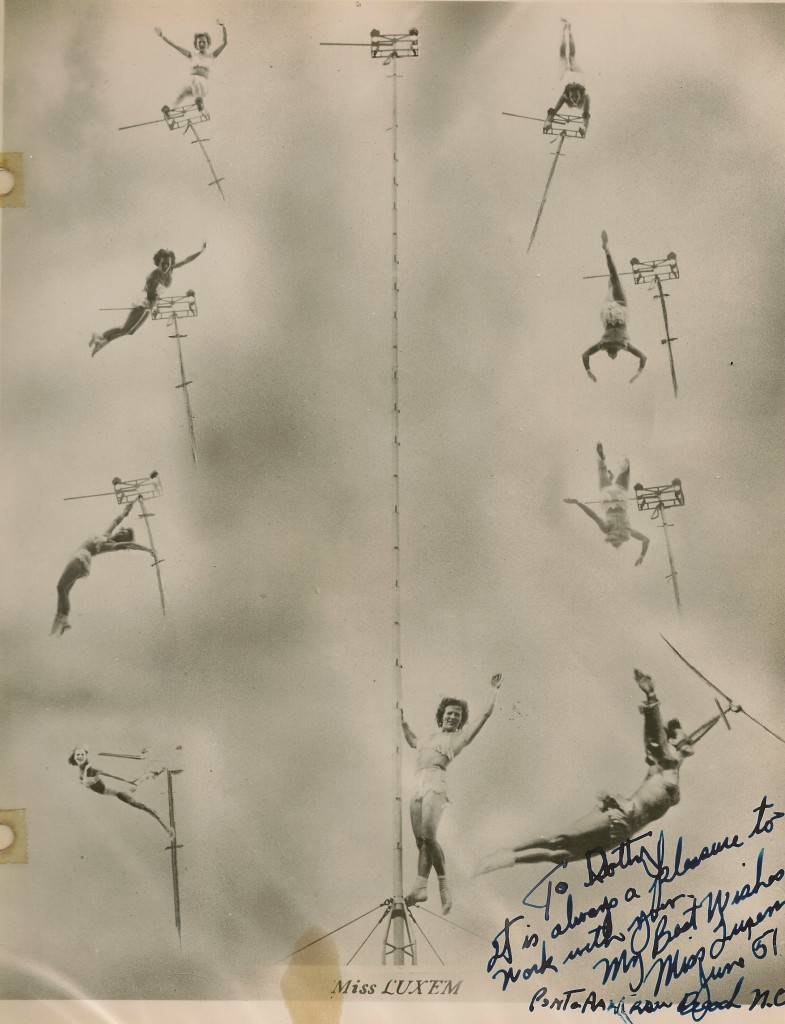 Miss LUXEM
To Dotty
It is always a pleasure to
work with you.
My Best Wishes
Miss Luxem
June 51
Beach N.C.